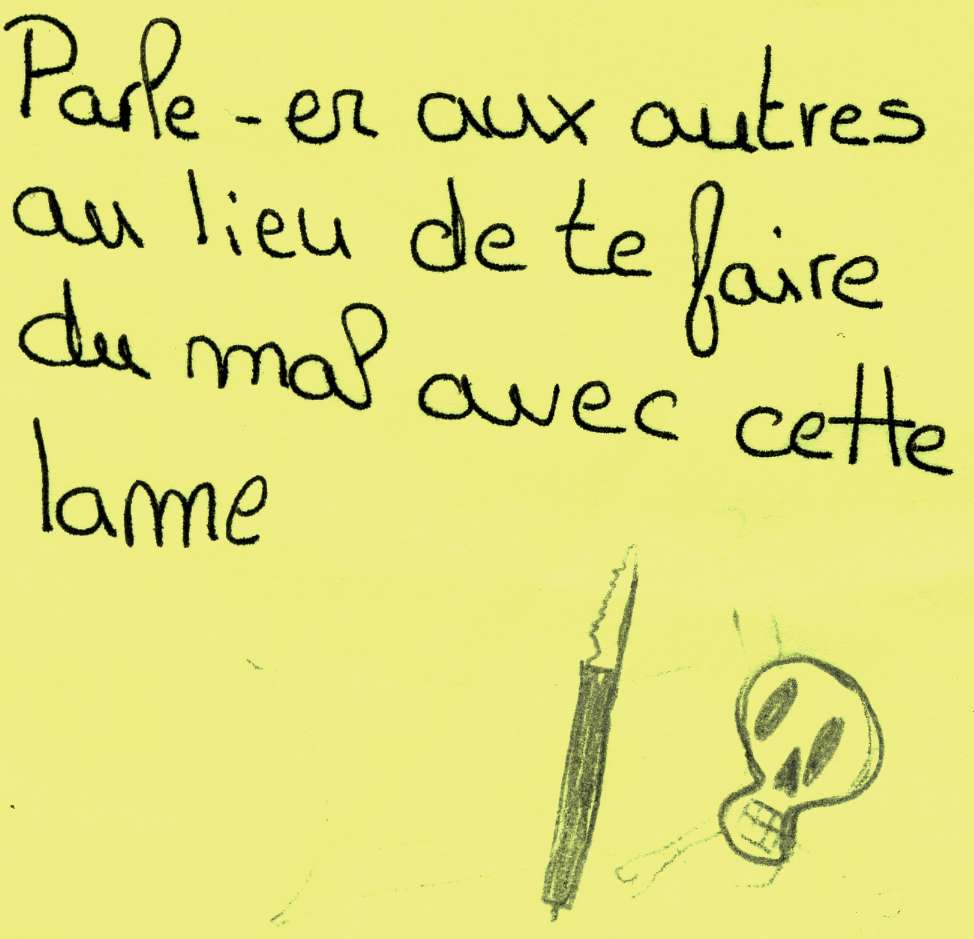 Parle-en aux autres
au lieu de te faire
du mal avec cette
lame